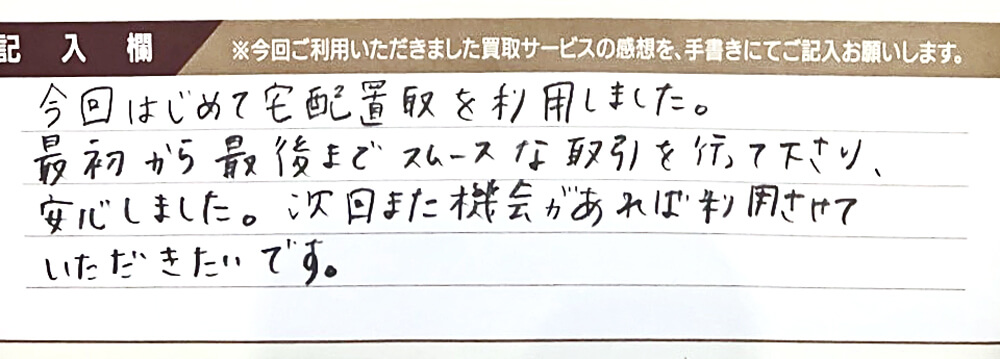 記入欄
※今回ご利用いただきました買取サービスの感想を、手書きにてご記入お願いします。
今回はじめて宅配置取を利用しました。
最初から最後までスムースな取引を行って下さり、
安心しました。次回また機会があれば利用させて
いただきたいです。